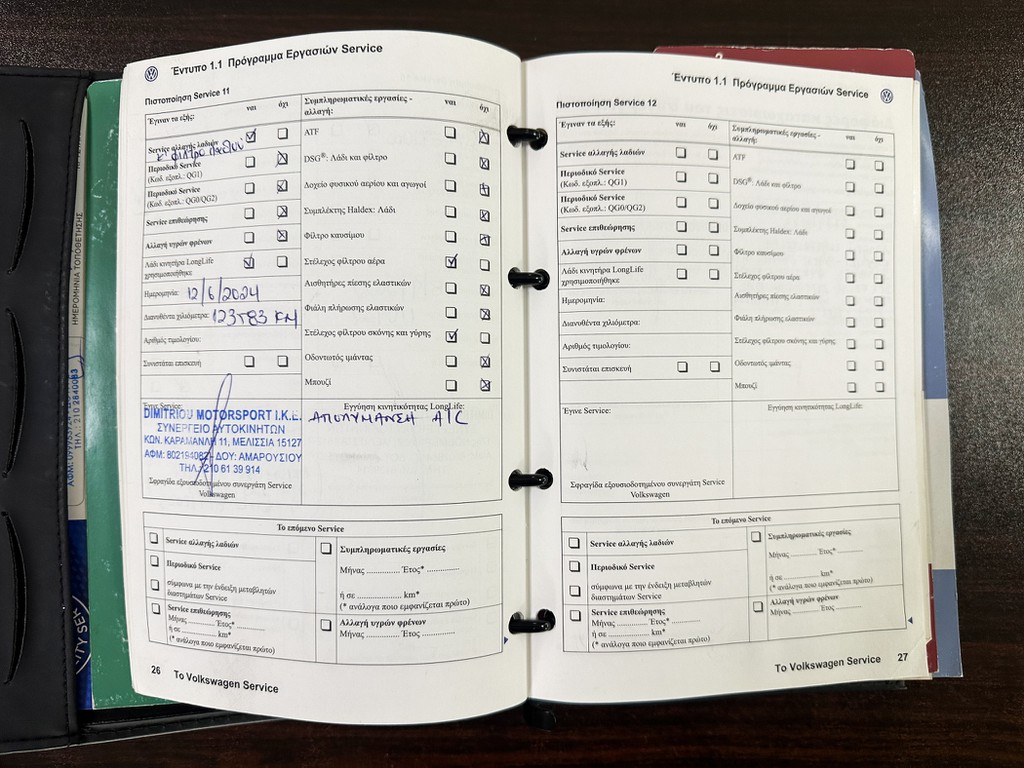 Έντυπο 1.1 Πρόγραμμα Εργασιών Service
Πιστοποίηση Service 11
Έγιναν τα εξής: ναι όχι
Service αλλαγής λαδιών
κ' φίλτρο λαδιού
Περιοδικό Service
(Κωδ. εξοπλ.: QG1)
Περιοδικό Service
(Κωδ. εξοπλ.: QG0/QG2)
Service επιθεώρησης
Αλλαγή υγρών φρένων
Λάδι κινητήρα LongLife
χρησιμοποιήθηκε
Ημερομηνία: 12/6/2024
Διανυθέντα χιλιόμετρα: 123583 KM
Αριθμός τιμολογίου:
Συνιστάται επισκευή
Συμπληρωματικές εργασίες -
αλλαγή: ναι όχι
ATF
DSG®: Λάδι και φίλτρο
Δοχείο φυσικού αερίου και αγωγοί
Συμπλέκτης Haldex: Λάδι
Φίλτρο καυσίμου
Στέλεχος φίλτρου αέρα
Αισθητήρες πίεσης ελαστικών
Φιάλη πλήρωσης ελαστικών
Στέλεχος φίλτρου σκόνης και γύρης
Οδοντωτός ιμάντας
Μπουζί
Έγινε Service:
DIMITRIOU MOTORSPORT Ι.Κ.Ε.
ΣΥΝΕΡΓΕΙΟ ΑΥΤΟΚΙΝΗΤΩΝ
ΚΩΝ. ΚΑΡΑΜΑΝΛΗ 11, ΜΕΛΙΣΣΙΑ 15127
ΑΦΜ: 802194082 - ΔΟΥ: ΑΜΑΡΟΥΣΙΟΥ
ΤΗΛ.: 210 61 39 914
Σφραγίδα εξουσιοδοτημένου συνεργάτη Service
Volkswagen
Εγγύηση κινητικότητας LongLife:
ΑΠΟΛΥΜΑΝΣΗ A/C
Το επόμενο Service
Service αλλαγής λαδιών
Περιοδικό Service
σύμφωνα με την ένδειξη μεταβλητών
διαστημάτων Service
Service επιθεώρησης
Μήνας ............ Έτος* ............
ή σε ............ km*
(* ανάλογα ποιο εμφανίζεται πρώτο)
Συμπληρωματικές εργασίες
Μήνας ............ Έτος* ............
ή σε ............ km*
(* ανάλογα ποιο εμφανίζεται πρώτο)
Αλλαγή υγρών φρένων
Μήνας ............ Έτος ............
26 Το Volkswagen Service
Έντυπο 1.1 Πρόγραμμα Εργασιών Service
Πιστοποίηση Service 12
Έγιναν τα εξής: ναι όχι
Service αλλαγής λαδιών
Περιοδικό Service
(Κωδ. εξοπλ.: QG1)
Περιοδικό Service
(Κωδ. εξοπλ.: QG0/QG2)
Service επιθεώρησης
Αλλαγή υγρών φρένων
Λάδι κινητήρα LongLife
χρησιμοποιήθηκε
Ημερομηνία:
Διανυθέντα χιλιόμετρα:
Αριθμός τιμολογίου:
Συνιστάται επισκευή
Συμπληρωματικές εργασίες -
αλλαγή: ναι όχι
ATF
DSG®: Λάδι και φίλτρο
Δοχείο φυσικού αερίου και αγωγοί
Συμπλέκτης Haldex: Λάδι
Φίλτρο καυσίμου
Στέλεχος φίλτρου αέρα
Αισθητήρες πίεσης ελαστικών
Φιάλη πλήρωσης ελαστικών
Στέλεχος φίλτρου σκόνης και γύρης
Οδοντωτός ιμάντας
Μπουζί
Έγινε Service:
Σφραγίδα εξουσιοδοτημένου συνεργάτη Service
Volkswagen
Εγγύηση κινητικότητας LongLife:
Το επόμενο Service
Service αλλαγής λαδιών
Περιοδικό Service
σύμφωνα με την ένδειξη μεταβλητών
διαστημάτων Service
Service επιθεώρησης
Μήνας ............ Έτος* ............
ή σε ............ km*
(* ανάλογα ποιο εμφανίζεται πρώτο)
Συμπληρωματικές εργασίες
Μήνας ............ Έτος* ............
ή σε ............ km*
(* ανάλογα ποιο εμφανίζεται πρώτο)
Αλλαγή υγρών φρένων
Μήνας ............ Έτος ............
Το Volkswagen Service 27
ΗΜΕΡΟΜΗΝΙΑ ΤΟΠΟΘΕΤΗΣΗΣ
ΤΗΛ.: 210 2840083